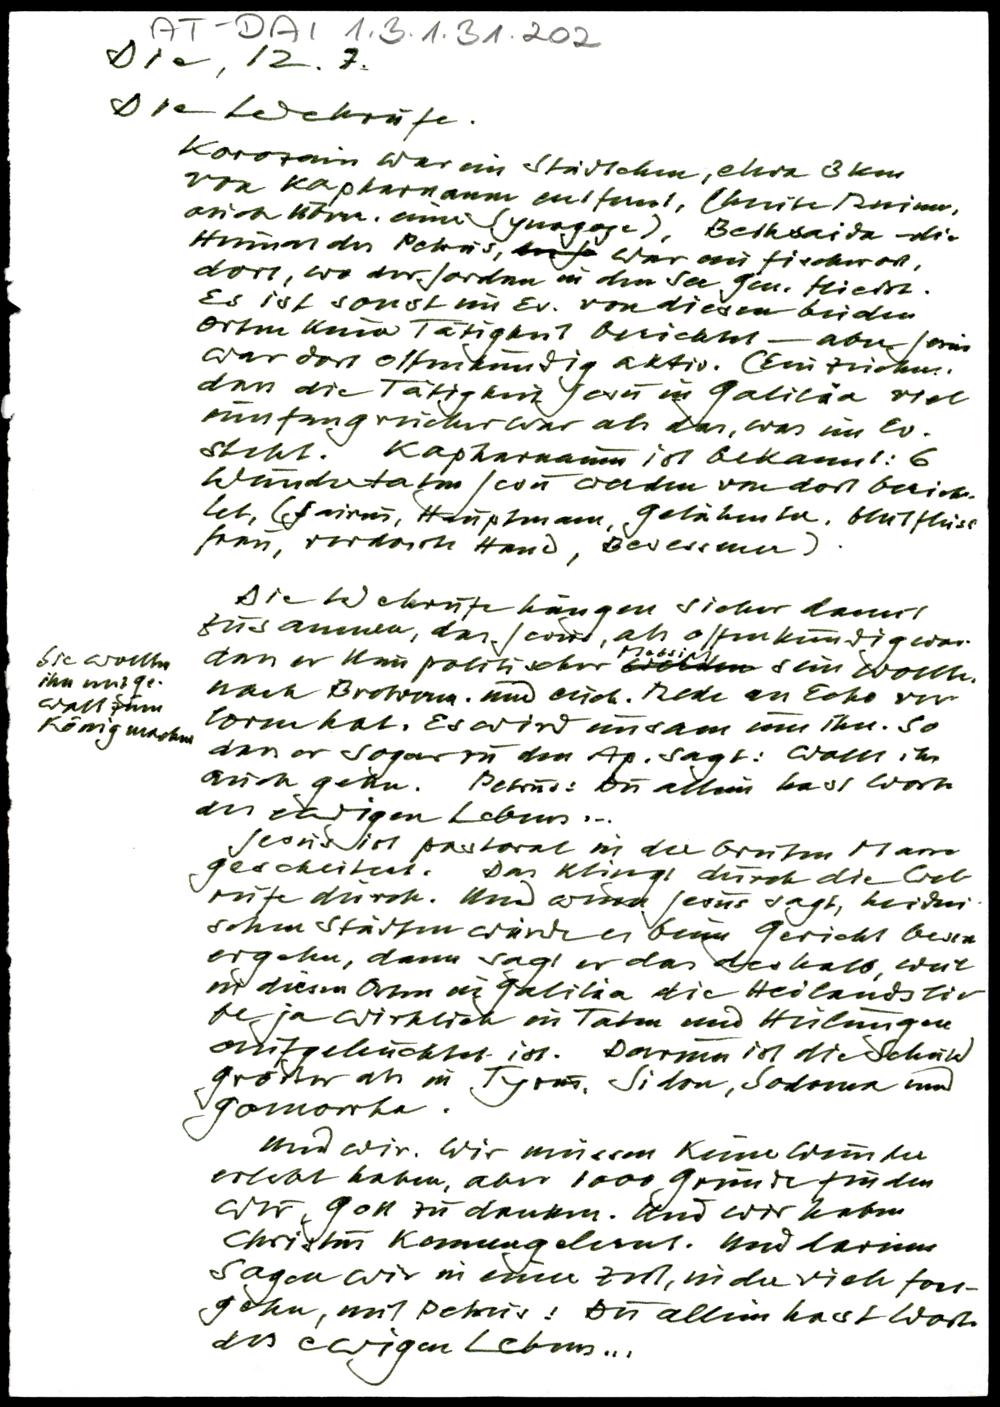 AT-DAI 1.3.1.31.202
Die, 12. 7.
Die Wehrufe.
Korozain war ein Städtchen, etwa 3 km
von Kapharnaum entfernt, (heute Ruinen,
auch röm. eine Synagoge), Bethsaida - die
Heimat des Petrus, war ein Fischerort,
dort, wo der Jordan in den See Gen. fliesst.
Es ist sonst im Ev. von diesen beiden
Orten keine Tätigkeit berichtet — aber Jesus
war dort offenkundig aktiv. (Ein Zeichen,
dass die Tätigkeit Jesu in Galiläa viel
umfangreicher war als das, was im Ev.
steht. Kapharnaum ist bekannt: 6
Wundertaten Jesu werden von dort berich-
tet, (Jairus, Hauptmann, Gelähmter, blutflüss
Frau, verdorrte Hand, Besessener).
Die Wehrufe hängen sicher damit
zusammen, dass Jesus, als offenkundig war
dass er kein politischer Messias sein wollte,
nach Brotverm. und euch. Rede an Echo ver-
loren hat. Es wird einsam um ihn. So
dass er sogar zu den Ap. sagt: Wollt ihr
auch gehn. Petrus: Du allein hast Worte
des ewigen Lebens...
Sie wollten
ihn mit Ge-
walt zum
König machen
Jesus ist pastoral in der breiten Masse
gescheitert. Das klingt durch die Weh-
rufe durch. Und wenn Jesus sagt, heidni-
schen Städten würde es beim Gericht besser
ergehn, dann sagt er das deshalb, weil
in diesen Orten in Galiläa die Heilandslie-
be ja wirklich in Taten und Heilungen
aufgeleuchtet ist. Darum ist die Schuld
grösser als in Tyrus, Sidon, Sodoma und
Gomorrha.
Und wir. Wir müssen keine Wunder
erlebt haben, aber 1000 Gründe finden
wir, Gott zu danken. Und wir haben
Christus kennengelernt. Und darum
sagen wir in einer Zeit, in der viele fort-
gehn, mit Petrus: Du allein hast Worte
des ewigen Lebens...